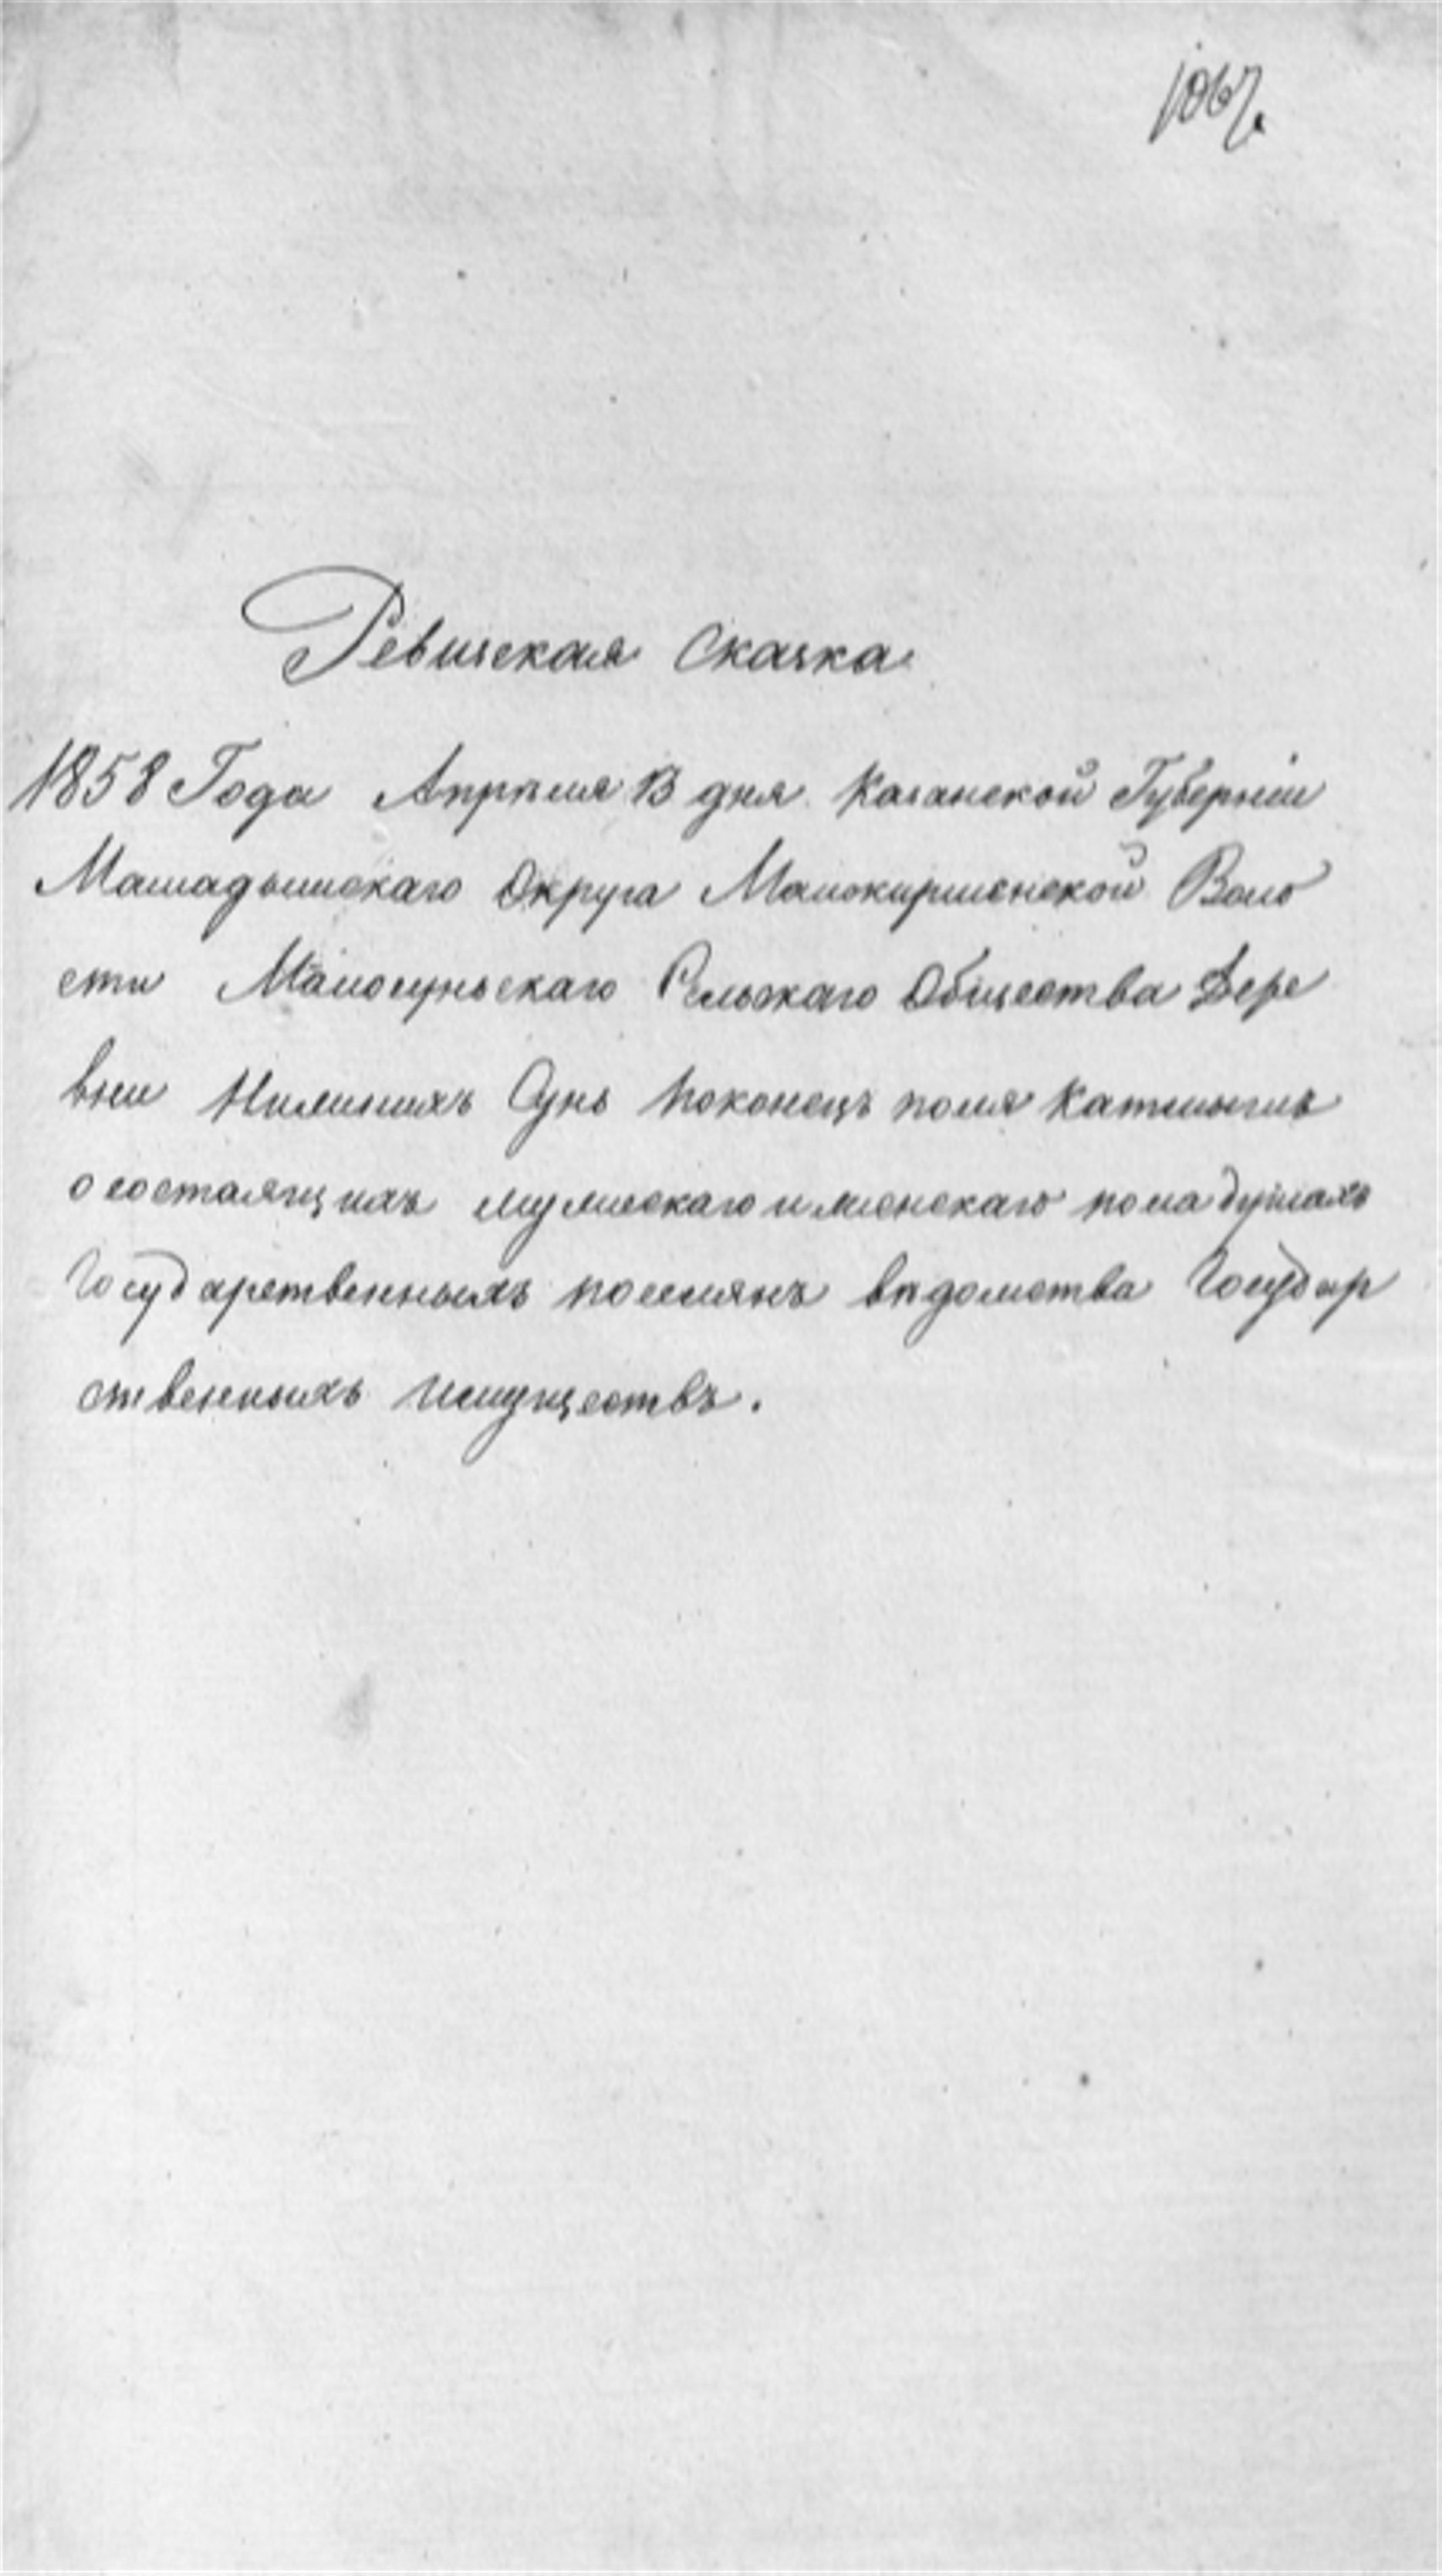 1067.
Ревизская Сказка
1858 Года Апрѣля 13 дня Казанской Губерніи
Мамадышскаго Округа Малокирменской Воло
сти Малосуньскаго Сельскаго Общества Дере
вни Нижнихъ Сунь Поконецъ поля
о состаящихъ мужескаго и женскаго пола душахъ
Государственныхъ поселянъ вѣдомства Государ
ственныхъ Имуществъ.